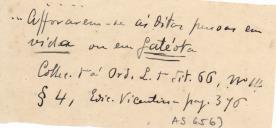 ... Afforarem-se as ditas pessoas em
vida ou em Gatéota
Collec. 1ª á Ord. L. 1 tit. 66, nº
§ 4, Edic. Vicentina pag. 376
AS 656)